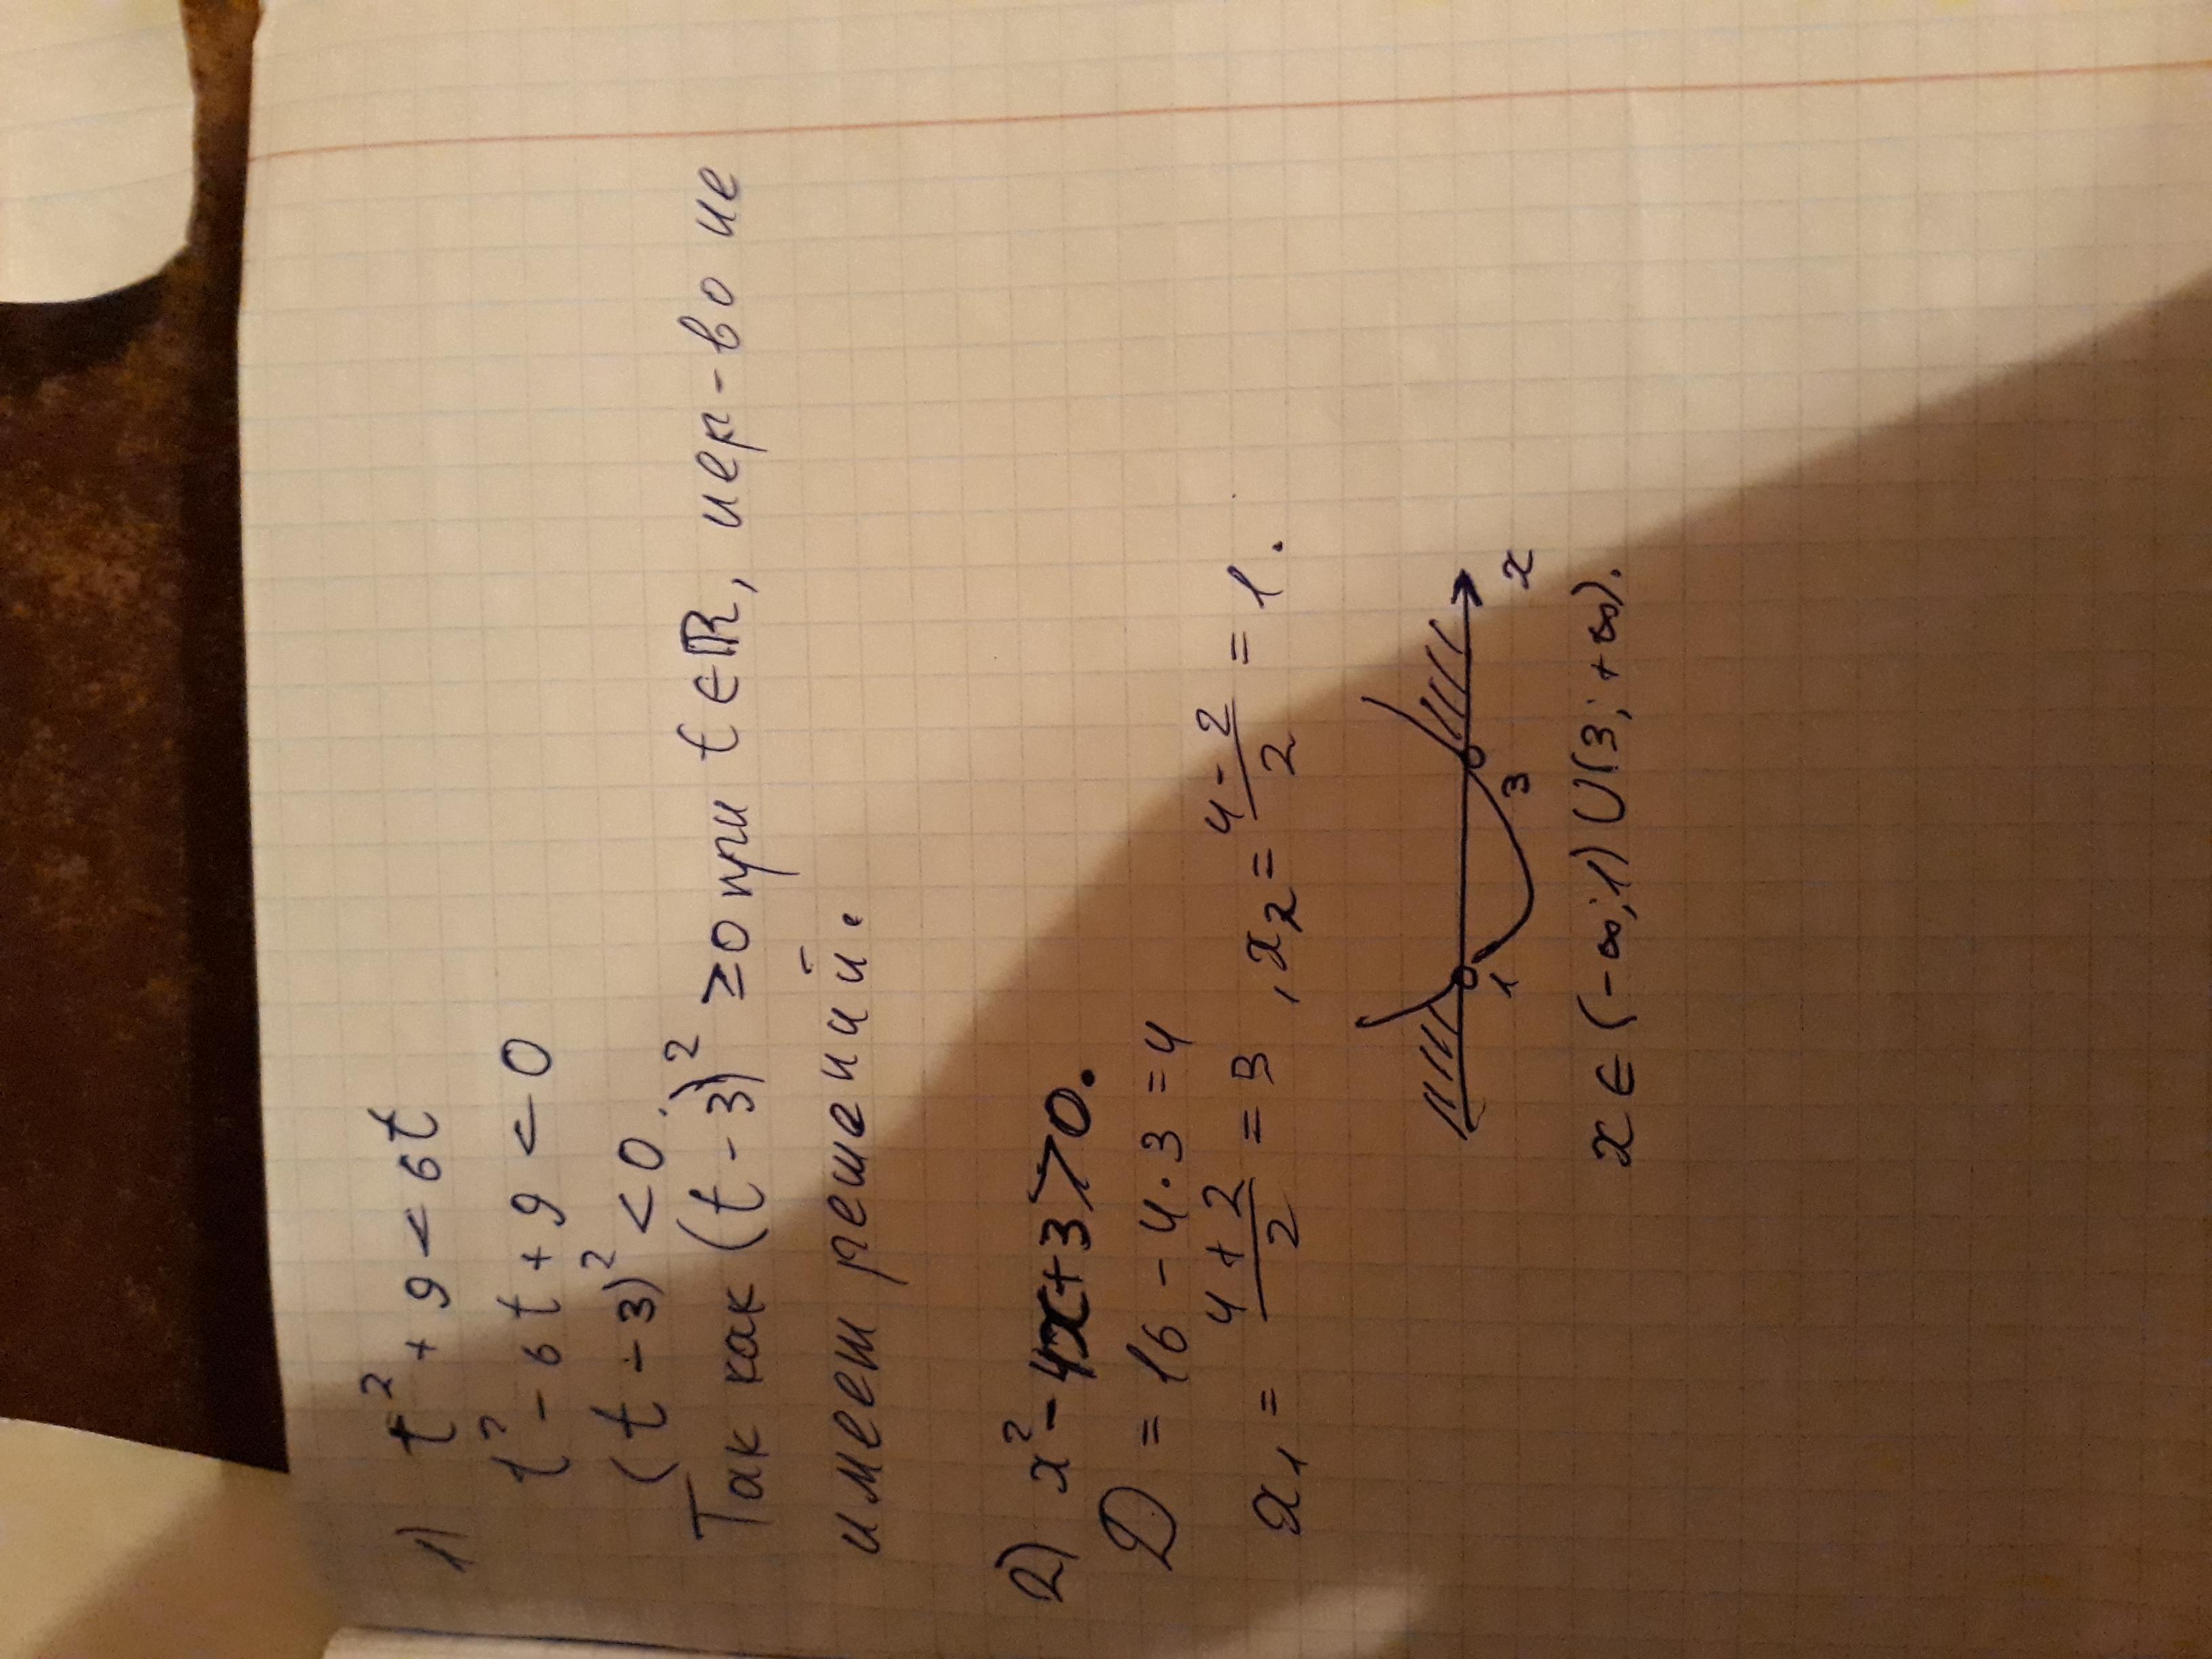 1) t² + 9 < 6t
t² - 6t + 9 < 0
(t - 3)² < 0.
Так как (t - 3)² ≥ 0 при t ∈ ℝ, нер-во не
имеет решений.
2) x² - 4x + 3 > 0.
D = 16 - 4·3 = 4
x₁ = (4+2)/2 = 3, x₂ = (4-2)/2 = 1.
1 3 x
x ∈ (-∞; 1) ∪ (3; +∞).